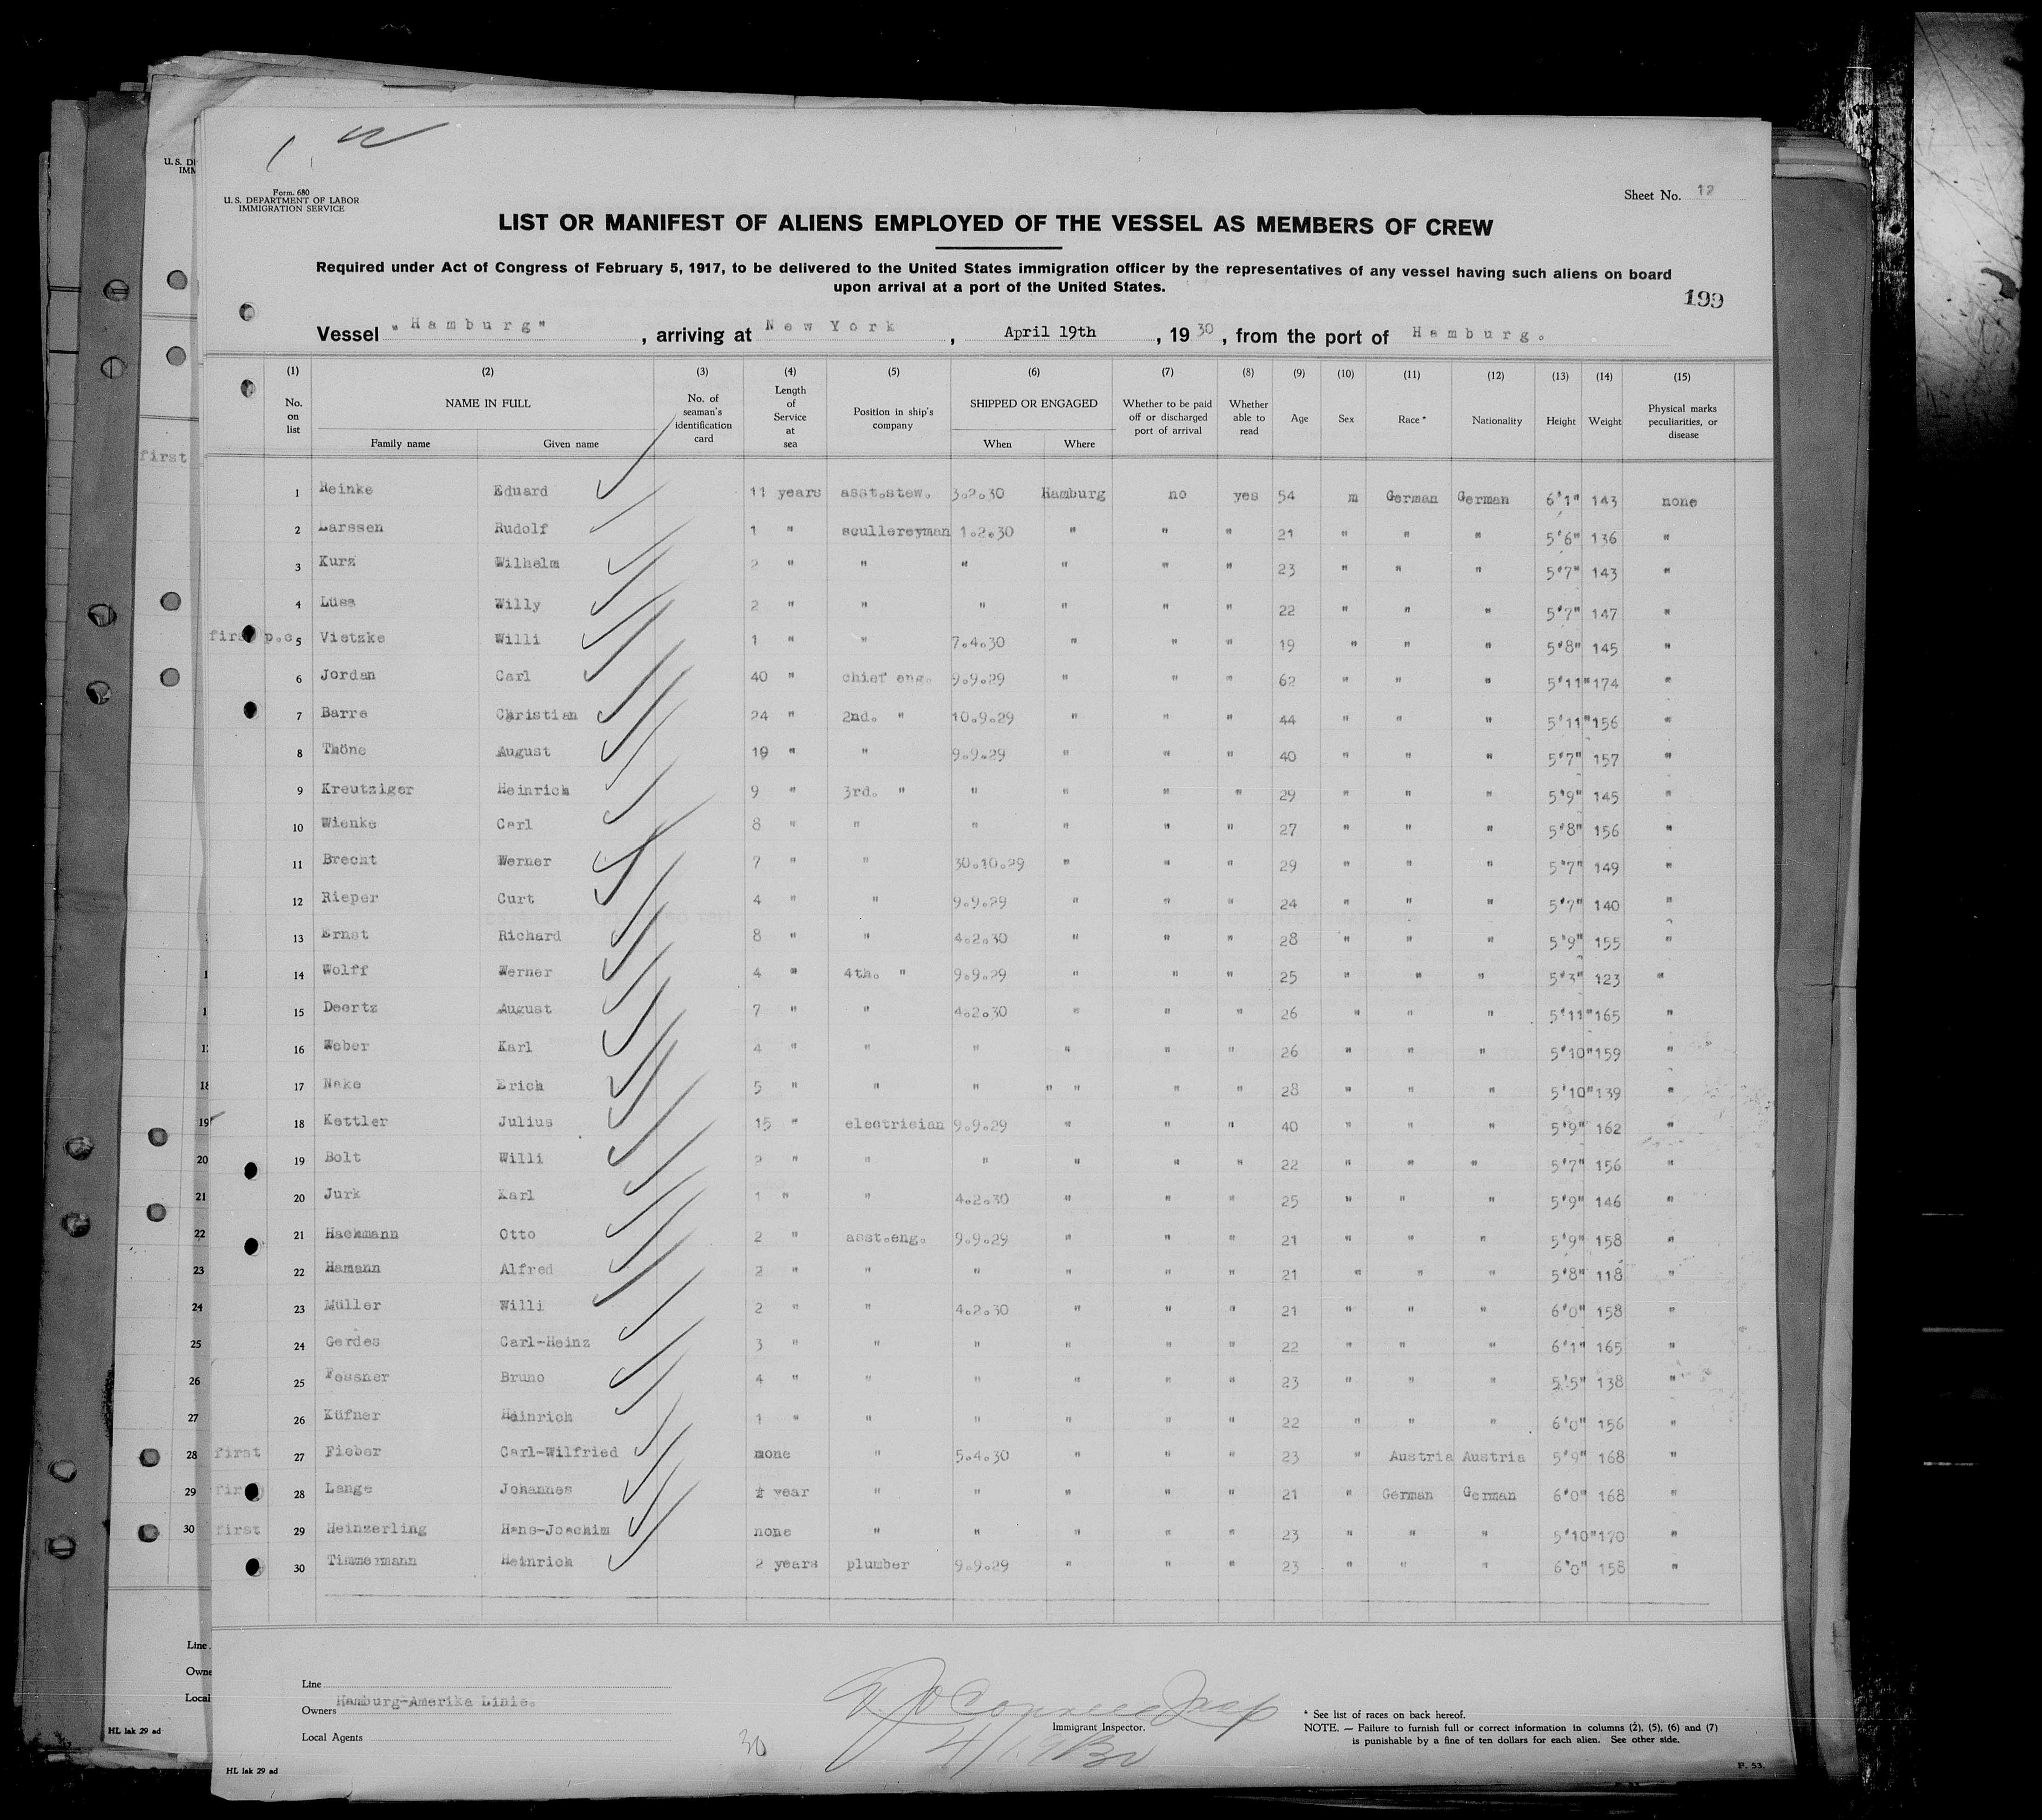 U.S. DI
IMM
Form. 680
U.S. DEPARTMENT OF LABOR
IMMIGRATION SERVICE
Sheet No. 12
LIST OR MANIFEST OF ALIENS EMPLOYED OF THE VESSEL AS MEMBERS OF CREW
Required under Act of Congress of February 5, 1917, to be delivered to the United States immigration officer by the representatives of any vessel having such aliens on board
upon arrival at a port of the United States.
199
Vessel "Hamburg", arriving at New York, April 19th, 1930, from the port of Hamburg.
(1) (2) (3) (4) (5) (6) (7) (8) (9) (10) (11) (12) (13) (14) (15)
No. on list NAME IN FULL Family name Given name No. of seaman's identification card Length of Service at sea Position in ship's company SHIPPED OR ENGAGED When Where Whether to be paid off or discharged port of arrival Whether able to read Age Sex Race * Nationality Height Weight Physical marks peculiarities, or disease
first
1 Reinke Eduard 11 years asst.stew. 3.2.30 Hamburg no yes 54 m German German 6'1" 143 none
2 Larssen Rudolf 1 " scullereyman 1.2.30 " " " 21 " " " 5'6" 136 "
3 Kurz Wilhelm 2 " " " " " " 23 " " " 5'7" 143 "
4 Lüss Willy 2 " " " " " " 22 " " " 5'7" 147 "
first p.c. 5 Vietzke Willi 1 " " 7.4.30 " " " 19 " " " 5'8" 145 "
6 Jordan Carl 40 " chief eng. 9.9.29 " " " 62 " " " 5'11" 174 "
7 Barre Christian 24 " 2nd. " 10.9.29 " " " 44 " " " 5'11" 156 "
8 Thöne August 19 " " 9.9.29 " " " 40 " " " 5'7" 157 "
9 Kreutziger Heinrich 9 " 3rd. " " " " " 29 " " " 5'9" 145 "
10 Wienke Carl 8 " " " " " " 27 " " " 5'8" 156 "
11 Brecht Werner 7 " " 30.10.29 " " " 29 " " " 5'7" 149 "
12 Rieper Curt 4 " " 9.9.29 " " " 24 " " " 5'7" 140 "
13 Ernst Richard 8 " " 4.2.30 " " " 28 " " " 5'9" 155 "
14 Wolff Werner 4 " 4th. " 9.9.29 " " " 25 " " " 5'3" 123 "
15 Deertz August 7 " " 4.2.30 " " " 26 " " " 5'11" 165 "
16 Weber Karl 4 " " " " " " 26 " " " 5'10" 159 "
17 Nake Erich 5 " " " " " " " 28 " " " 5'10" 139 "
18 Kettler Julius 15 " electrician 9.9.29 " " " 40 " " " 5'9" 162 "
19 Bolt Willi 2 " " " " " " 22 " " " 5'7" 156 "
20 Jurk Karl 1 " " 4.2.30 " " " 25 " " " 5'9" 146 "
21 Hackmann Otto 2 " asst.eng. 9.9.29 " " " 21 " " " 5'9" 158 "
22 Hamann Alfred 2 " " " " " " 21 " " " 5'8" 118 "
23 Müller Willi 2 " " 4.2.30 " " " 21 " " " 6'0" 158 "
24 Gerdes Carl-Heinz 3 " " " " " " 22 " " " 6'1" 165 "
25 Fessner Bruno 4 " " " " " " 23 " " " 5'5" 138 "
26 Küfner Heinrich 1 " " " " " " 22 " " " 6'0" 156 "
first 27 Fieber Carl-Wilfried none " 5.4.30 " " " 23 " Austria Austria 5'9" 168 "
first 28 Lange Johannes ½ year " " " " " 21 " German German 6'0" 168 "
first 29 Heinzerling Hans-Joachim none " " " " " 23 " " " 5'10" 170 "
30 Timmermann Heinrich 2 years plumber 9.9.29 " " " 23 " " " 6'0" 158 "
18
19
20
21
22
23
24
25
26
27
28
29
30
Line
Owners Hamburg-Amerika Linie.
Local Agents
30
Immigrant Inspector.
4/19/30
* See list of races on back hereof.
NOTE. — Failure to furnish full or correct information in columns (2), (5), (6) and (7)
is punishable by a fine of ten dollars for each alien. See other side.
HL lak 29 ad
P. 53.
Line
Owne
Local
HL lak 29 ad